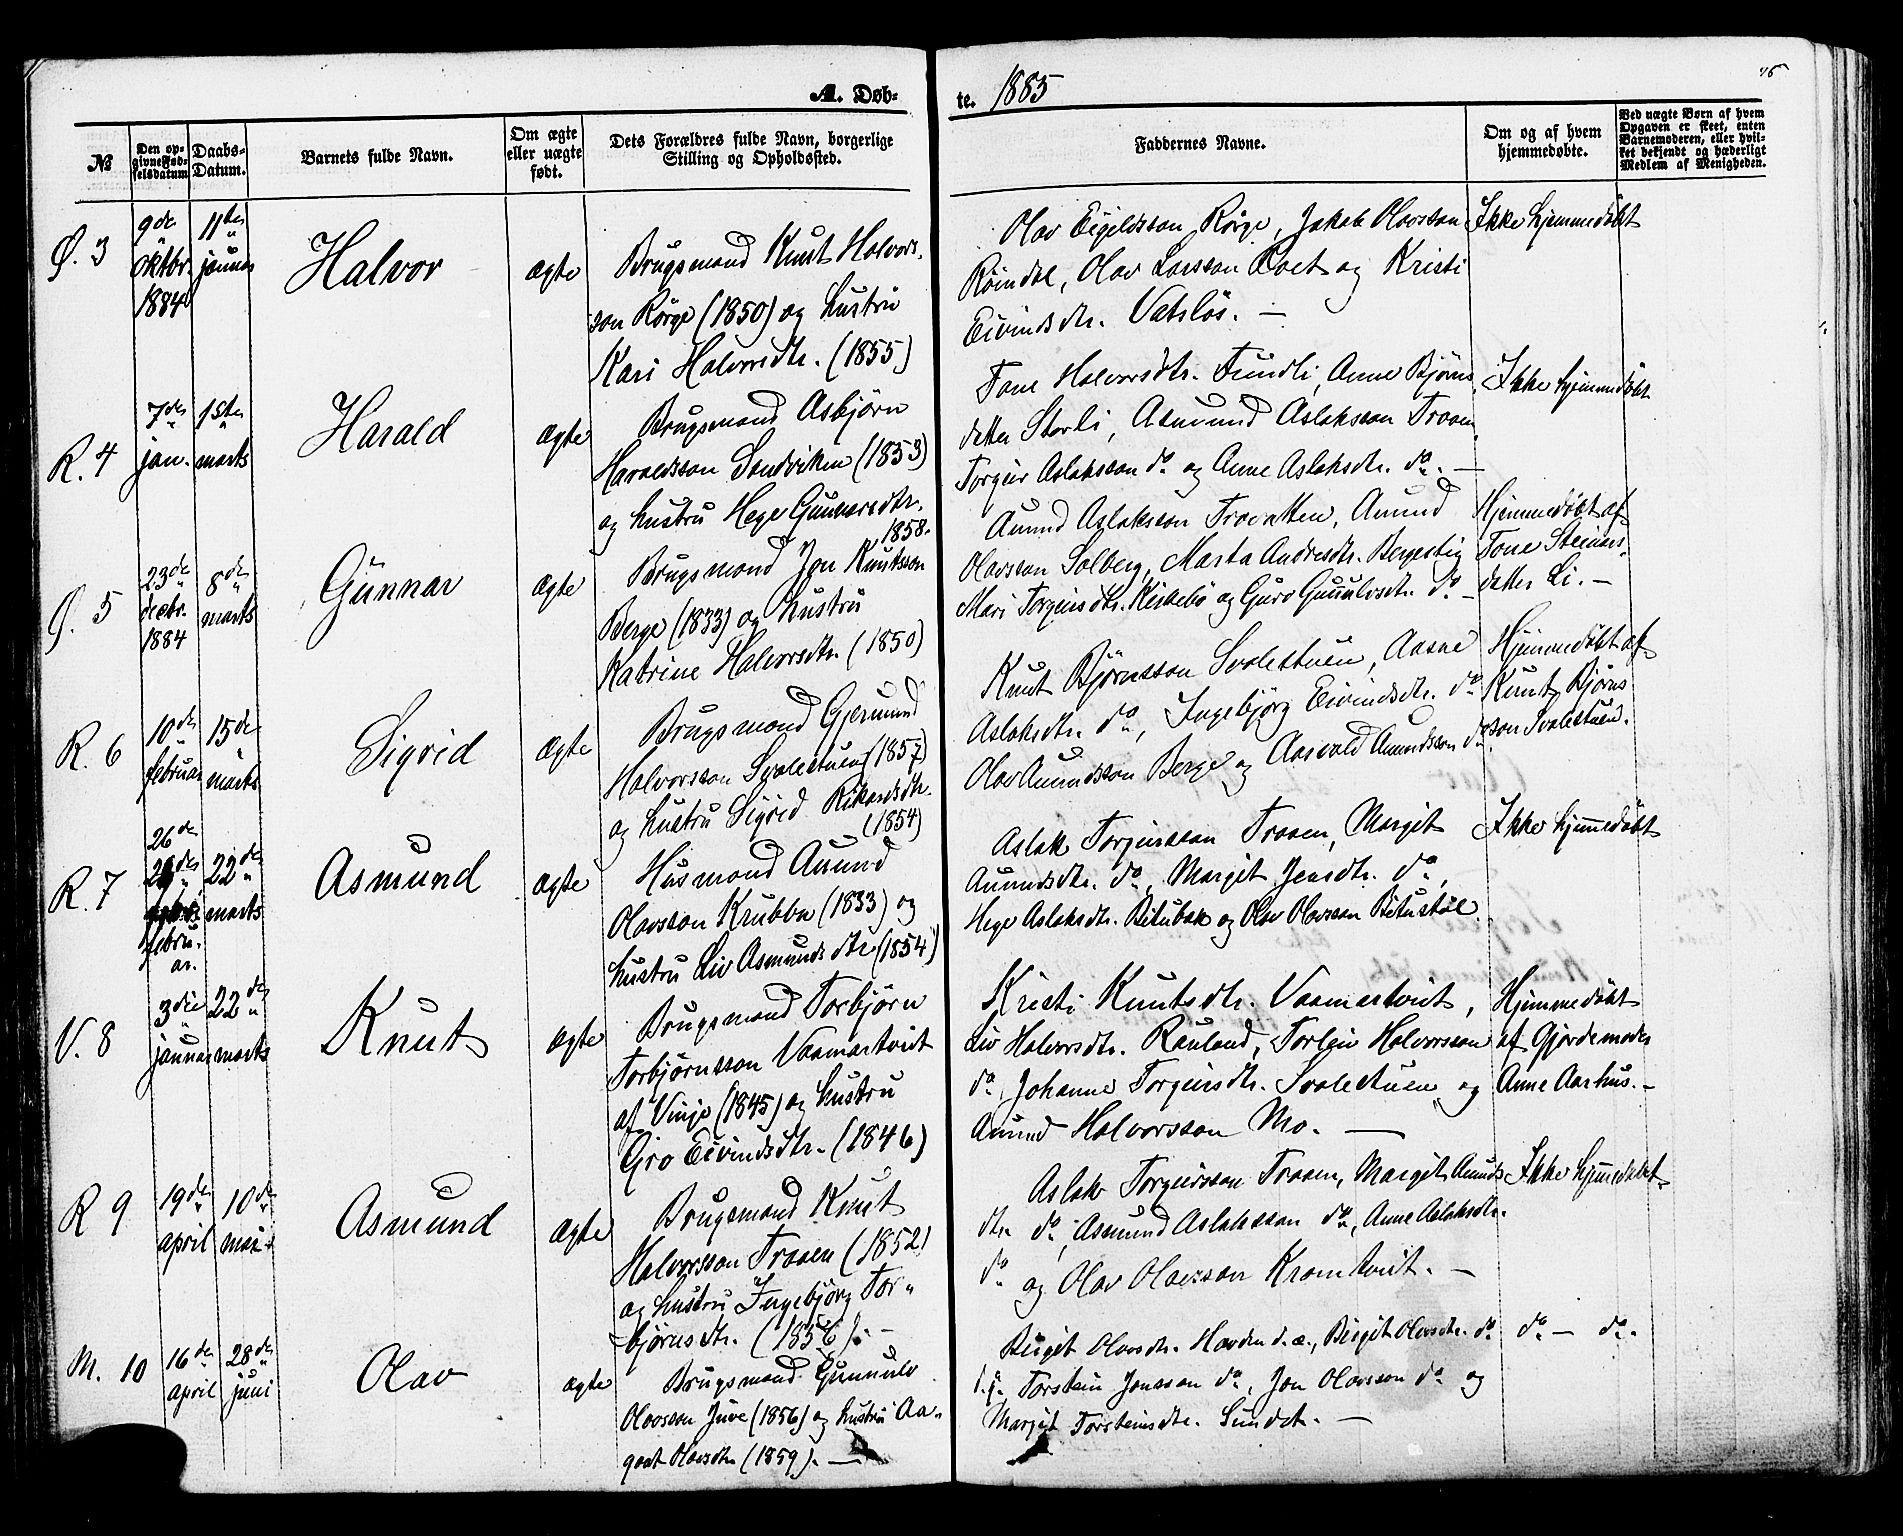 A. Døb-
te. 1885
76
№
Den op-
givne Fød-
selsdatum
Daabs-
Datum.
Barnets fulde Navn.
Om ægte
eller uægte
født.
Dets Forældres fulde Navn, borgerlige
Stilling og Opholdssted.
Faddernes Navne.
Om og af hvem
hjemmedøbte.
Ved uægte Børn af hvem
Opgaven er skeet, enten
Barnemoderen, eller hvil-
ket bekjendt og hæderligt
Medlem af Menigheden.
Ø. 3
9de
oktbr.
1884
11te
januar
Halvor
ægte
Brugsmand Knut Halvors-
son Rørge (1850) og hustru
Kari Halvorsdtr. (1855)
Olav Eigeldsson Rørge, Jakob Olavsson
Olav Larsson og Kristi
Eivindsdtr. Vatsløs. —
Ikke hjemmedøbt
R. 4
7de
jan.
1ste
marts
Harald
ægte
Brugsmand Asbjørn
Haraldsson Sandviken (1853)
og hustru Hege Gunnarsdtr.
1858.
Tone Halvorsdtr. Fundli, Anne Bjørns-
datter Storli, Asmund Aslaksson Traaen,
Torgeir Aslaksson do og Anne Aslaksdtr. do. —
Ikke hjemmedøbt
Ø. 5
23de
decbr.
1884
8de
marts
Gunnar
ægte
Brugsmand Jon Knutsson
Berge (1833) og hustru
Katrine Halvorsdtr. (1850)
Aumund Aslaksson Traatten, Aumund
Olavsson Solberg, Marta Andresdtr. Bergestig
Mari Torgeirsdtr. Kirkebø og Guro Gunulvsdtr. do —
Hjemmedøbt af
Tone Steinars-
datter Li. —
R. 6
10de
februar
15de
marts
Sigrid
ægte
Brugsmand Gjermund
Halvorsson Svalestuen (1857)
og hustru Sigrid Rikardsdtr.
(1854)
Knut Bjørnsson Svalestuen, Aasne
Aslaksdtr. do, Ingebjørg Eivindsdtr. do
Olav Aumundsson Berge og Aasvald Aumundsson do
Hjemmedøbt af
Knut Bjørns-
son Svalestuen.
R. 7
26de
febru-
ar.
22de
marts
Asmund
ægte
Husmand Aumund
Olavsson Krubba (1833) og
hustru Liv Asmundsdtr (1854)
Aslak Torgeirsson Traaen, Margit
Aumundsdtr. do, Margit Jensdtr. do,
Hege Aslaksdtr. Bitubak og Olav Olavsson Bitustøl.
Ikke hjemmedøbt
V. 8
3die
januar
22de
marts
Knut
ægte
Brugsmand Torbjørn
Torbjørnsson Vaamartveit
af Vinje (1845) og hustru
Gro Eivindsdtr. (1846)
Kristi Knutsdtr. Vaamartveit,
Liv Halvorsdtr. Rauland, Torleiv Halvorsson
do, Johanne Torgeirsdtr. Svalestuen og
Aumund Halvorsson Mo. —
Hjemmedøbt
af Gjordemoder
Anne Aarhus. —
R 9
19de
april
10de
mai
Asmund
ægte
Brugsmand Knut
Halvorsson Traaen (1852)
og hustru Ingebjørg Tor-
bjørnsdtr. (1856). —
Aslak Torgeirsson Traaen, Margit Aumunds-
dtr. do, Asmund Aslaksson do, Anne Aslaksdtr.
do og Olav Olavsson Kromtveit. —
Ikke hjemmedøbt
M. 10
16de
april
28de
juni
Olav
ægte
Brugsmand Gunnulv
Olavsson Juve (1856) og hustru Aa-
gaat Olavsdtr (1859). —
Birgit Olavsdtr. Havden d. æ., Birgit Olavsdtr. do
d. y. Torstein Jonsson do, Jon Olavsson do og
Margit Torsteinsdtr. Sundet. —
do — do.